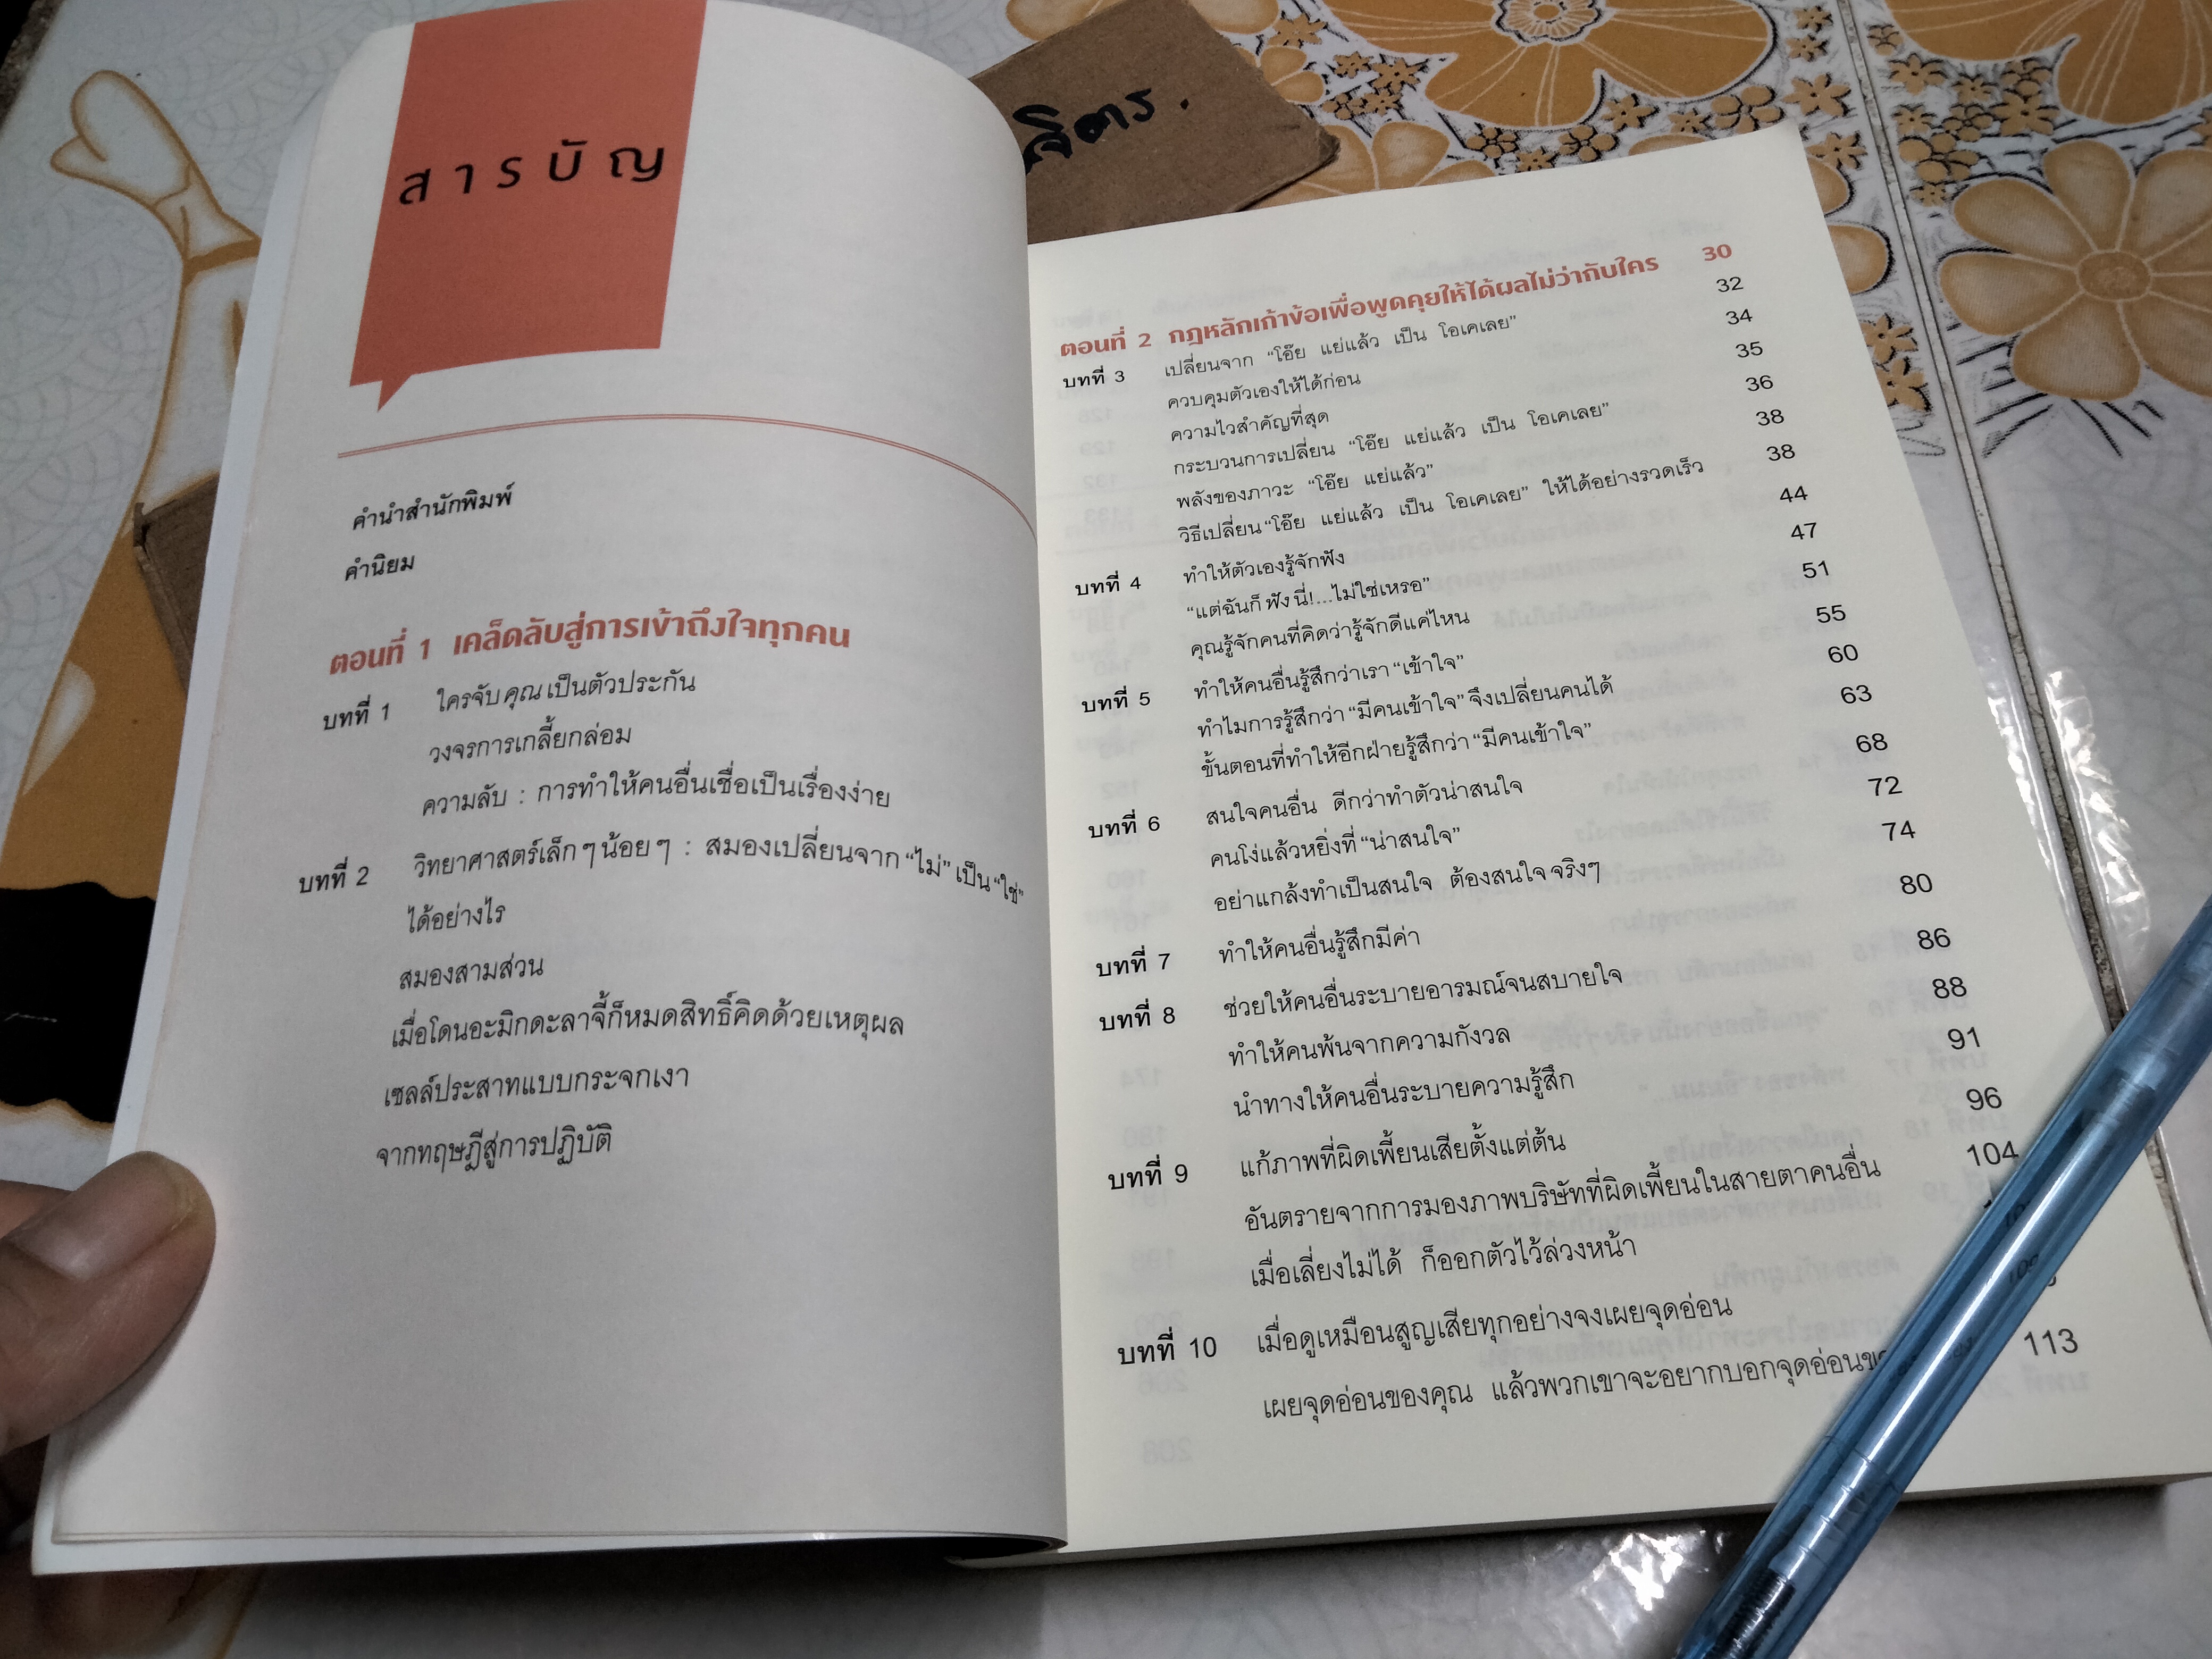 สารบัญ
คำนำสำนักพิมพ์
คำนิยม
ตอนที่ 1 เคล็ดลับสู่การเข้าถึงใจทุกคน
บทที่ 1 ใครจับคุณเป็นตัวประกัน
วงจรการเกลี้ยกล่อม
ความลับ : การทำให้คนอื่นเชื่อเป็นเรื่องง่าย
บทที่ 2 วิทยาศาสตร์เล็กๆน้อยๆ : สมองเปลี่ยนจาก “ไม่” เป็น “ใช่”
ได้อย่างไร
สมองสามส่วน
เมื่อโดนอะมิกดะลาจี้ก็หมดสิทธิ์คิดด้วยเหตุผล
เซลล์ประสาทแบบกระจกเงา
จากทฤษฎีสู่การปฏิบัติ
ตอนที่ 2 กฎหลักเก้าข้อเพื่อพูดคุยให้ได้ผลไม่ว่ากับใคร 30
บทที่ 3 เปลี่ยนจาก “โอ๊ย แย่แล้ว เป็น โอเคเลย” 32
ควบคุมตัวเองให้ได้ก่อน 34
ความไวสำคัญที่สุด 35
กระบวนการเปลี่ยน “โอ๊ย แย่แล้ว เป็น โอเคเลย” 36
พลังของภาวะ “โอ๊ย แย่แล้ว” 38
วิธีเปลี่ยน “โอ๊ย แย่แล้ว เป็น โอเคเลย” ให้ได้อย่างรวดเร็ว 38
บทที่ 4 ทำให้ตัวเองรู้จักฟัง 44
“แต่ฉันก็ฟังนี่!...ไม่ใช่เหรอ” 47
คุณรู้จักคนที่คิดว่ารู้จักดีแค่ไหน 51
บทที่ 5 ทำให้คนอื่นรู้สึกว่าเรา “เข้าใจ” 55
ทำไมการรู้สึกว่า “มีคนเข้าใจ” จึงเปลี่ยนคนได้ 60
ขั้นตอนที่ทำให้อีกฝ่ายรู้สึกว่า “มีคนเข้าใจ” 63
บทที่ 6 สนใจคนอื่น ดีกว่าทำตัวน่าสนใจ 68
คนโง่แล้วหยิ่งที่ “น่าสนใจ” 72
อย่าแกล้งทำเป็นสนใจ ต้องสนใจจริงๆ 74
บทที่ 7 ทำให้คนอื่นรู้สึกมีค่า 80
บทที่ 8 ช่วยให้คนอื่นระบายอารมณ์จนสบายใจ 86
ทำให้คนพ้นจากความกังวล 88
นำทางให้คนอื่นระบายความรู้สึก 91
บทที่ 9 แก้ภาพที่ผิดเพี้ยนเสียตั้งแต่ต้น 96
อันตรายจากการมองภาพบริษัทที่ผิดเพี้ยนในสายตาคนอื่น 104
เมื่อเลี่ยงไม่ได้ ก็ออกตัวไว้ล่วงหน้า
บทที่ 10 เมื่อดูเหมือนสูญเสียทุกอย่างจงเผยจุดอ่อน
เผยจุดอ่อนของคุณ แล้วพวกเขาจะอยากบอกจุดอ่อน 113